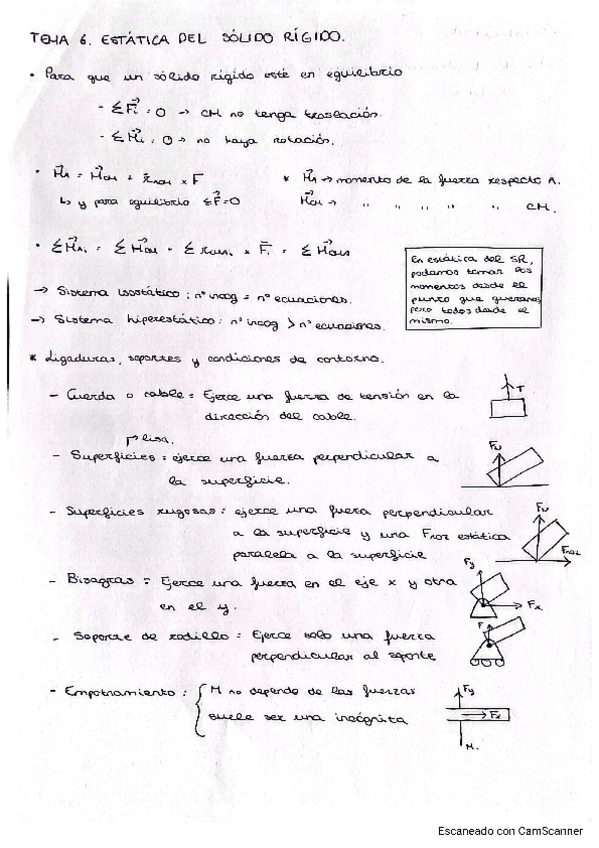 TEMA 6. ESTÁTICA DEL SÓLIDO RÍGIDO.
• Para que un sólido rígido esté en equilibrio
- ΣF⃗i = 0 → CM no tenga traslación.
- ΣM⃗i = 0 → no haya rotación.
• M⃗A = M⃗CM + r⃗ACM × F
↳ y para equilibrio ΣF⃗=0
* M⃗A → momento de la fuerza respecto A.
M⃗CM → " " " " " CM.
• ΣM⃗Ai = ΣM⃗CM + Σ rCMAi × F⃗i = ΣM⃗CMi
En estática del SR,
podamos tomar los
momentos desde el
punto que queramos
pero todos desde el
mismo.
→ Sistema isostático: nº incog = nº ecuaciones.
→ Sistema hiperestático: nº incog > nº ecuaciones.
* Ligaduras, soportes y condiciones de contorno.
- Cuerda o cable = Ejerce una fuerza de tensión en la
dirección del cable.
T
lisa.
- Superficies = ejerce una fuerza perpendicular a
la superficie.
FN
- Superficies rugosas = ejerce una fuera perpendicular
a la superficie y una Froz estática
paralela a la superficie
FN
Froz
- Bisagras = Ejerce una fuerza en el eje x y otra
en el y.
Fy
Fx
- Soporte de rodillo = Ejerce solo una fuerza
perpendicular al soporte
F
- Empotramiento : { M no depende de las fuerzas
suele ser una incógnita
Fy
Fx
M.
Escaneado con CamScanner